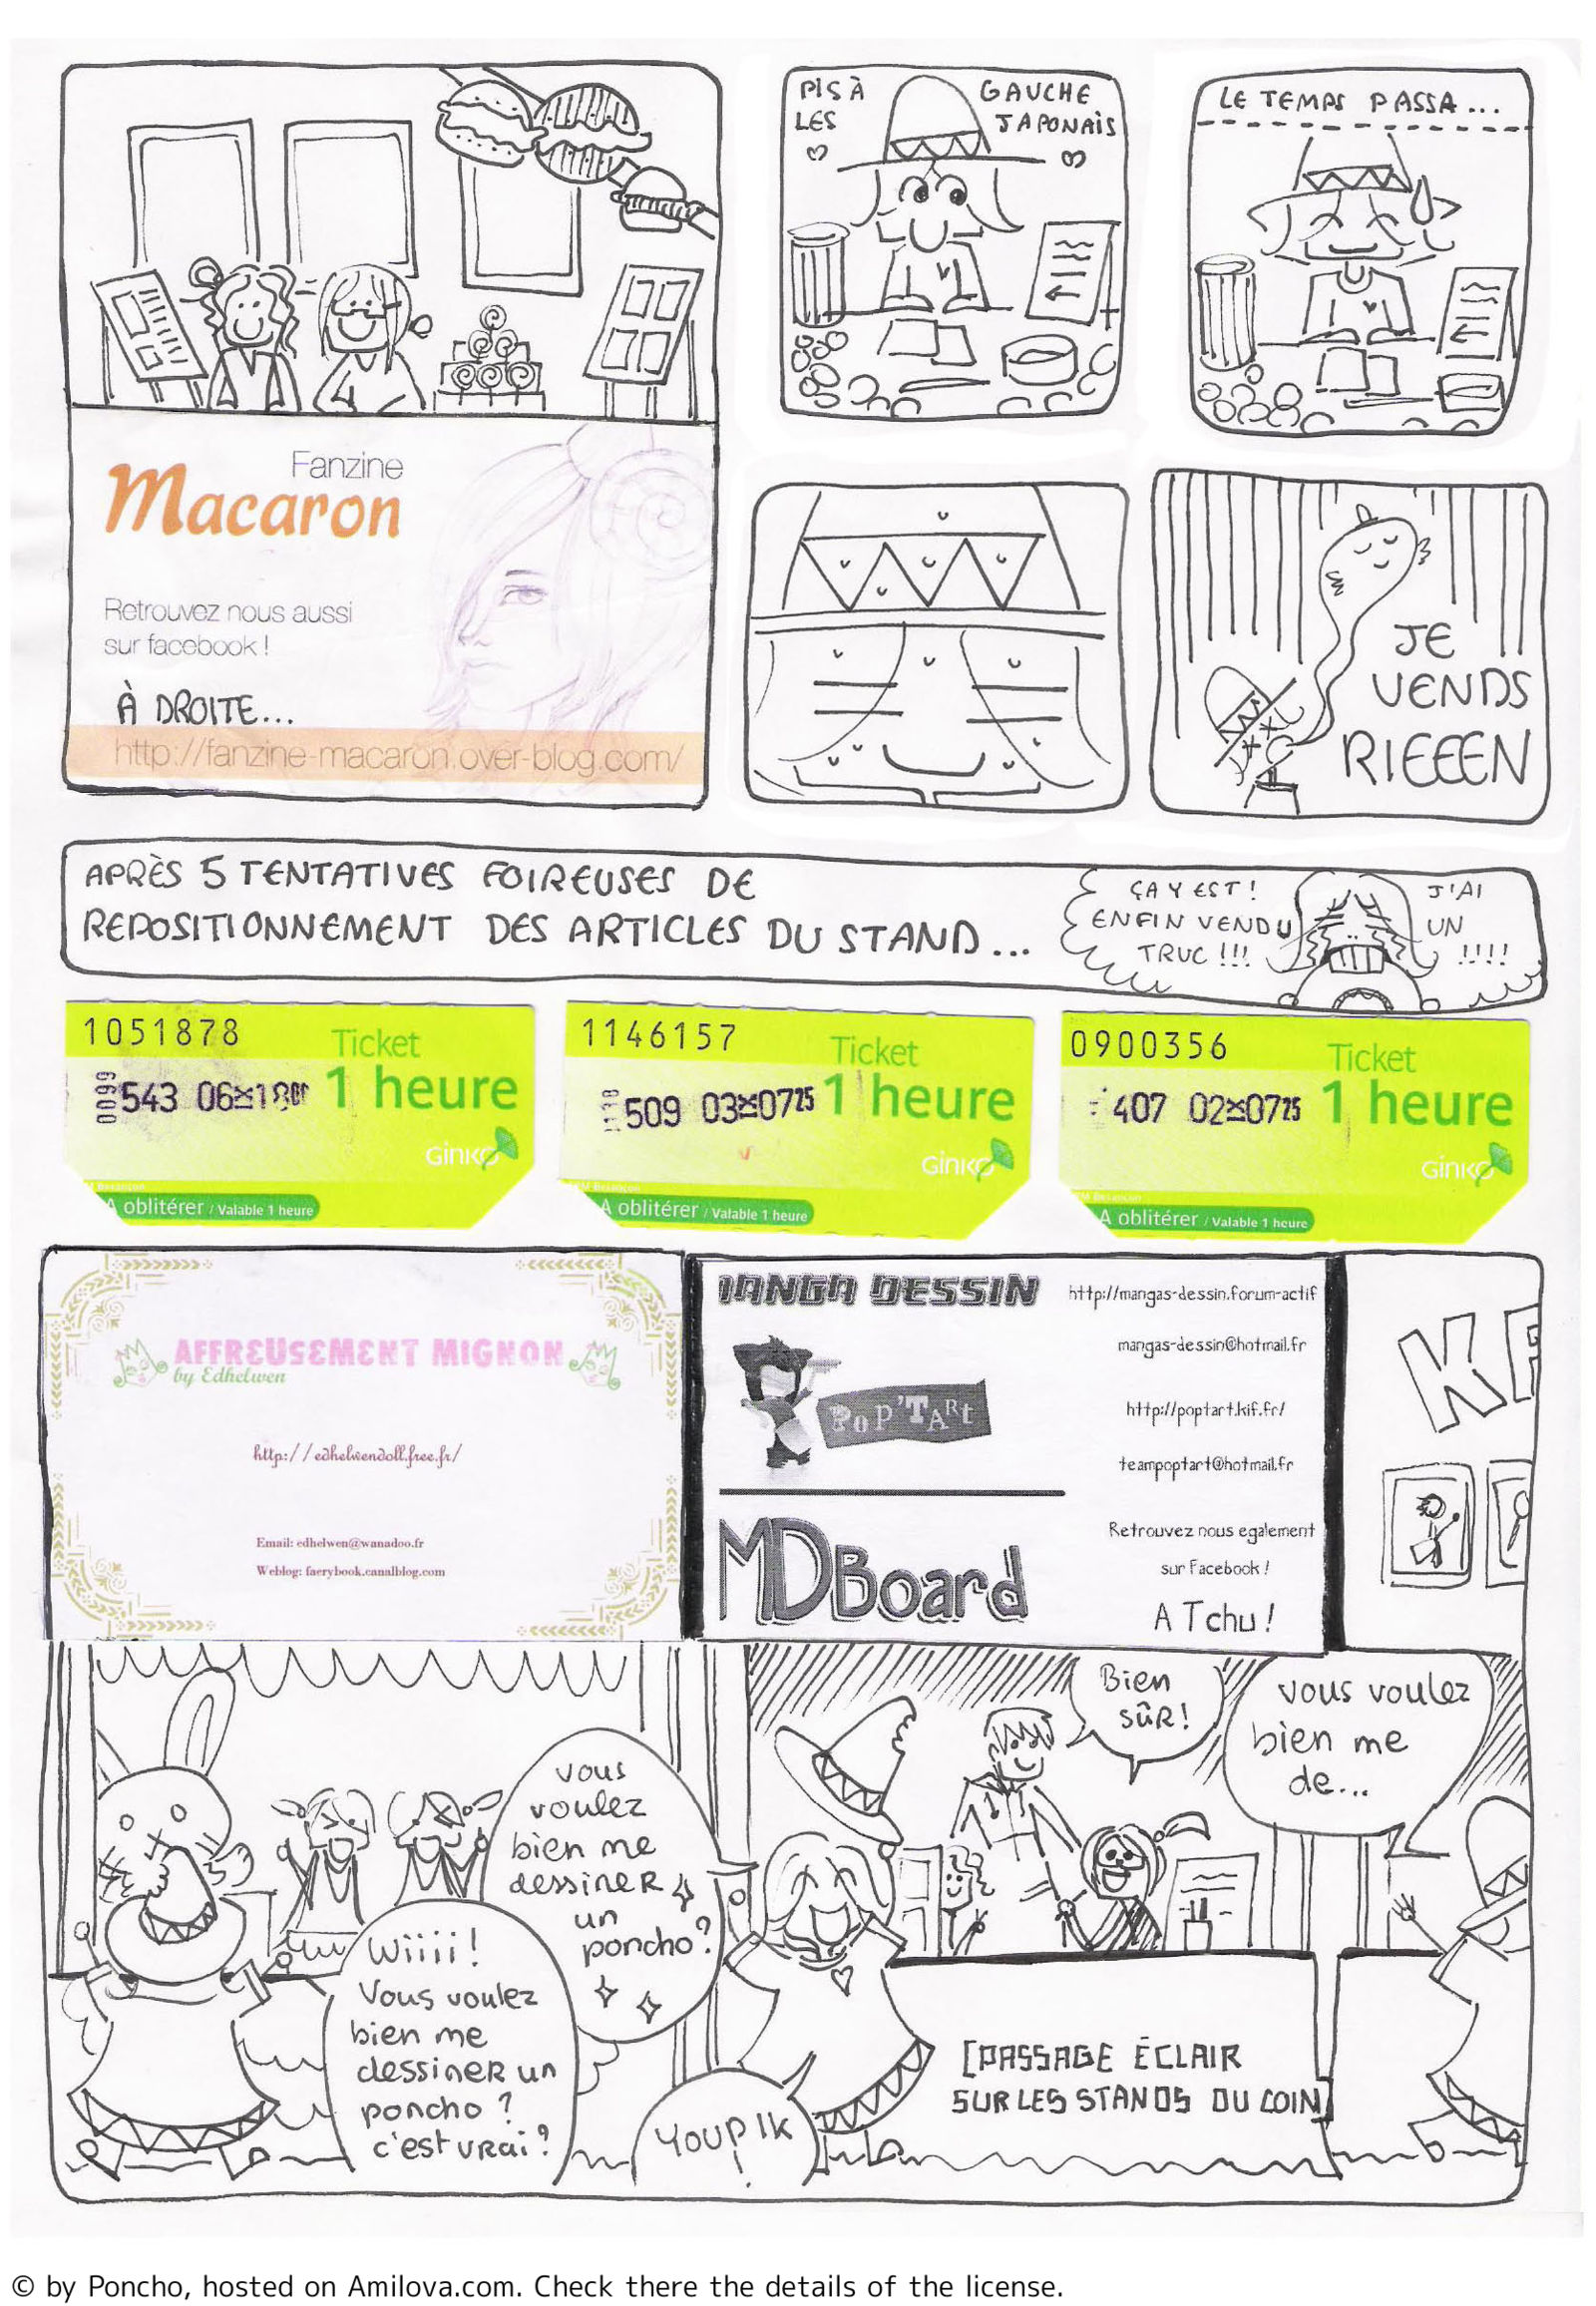 Fanzine
Macaron
Retrouvez nous aussi
sur facebook !
À DROITE...
http://fanzine-macaron.over-blog.com/
PIS À GAUCHE
LES JAPONAIS
LE TEMPS PASSA...
JE
VENDS
RIEEEN
APRÈS 5 TENTATIVES FOIREUSES DE
REPOSITIONNEMENT DES ARTICLES DU STAND...
ÇA Y EST ! J'AI
ENFIN VENDU UN
TRUC !!! !!!!
1051878
Ticket
0099 543 06 18
1 heure
GINKO
A oblitérer / Valable 1 heure
1146157
Ticket
509 03 0725
1 heure
GINKO
A oblitérer / Valable 1 heure
0900356
Ticket
407 02 0725
1 heure
GINKO
A oblitérer / Valable 1 heure
AFFREUSEMENT MIGNON
by Edhelwen
http://edhelwendoll.free.fr/
Email: edhelwen@wanadoo.fr
Weblog: faerybook.canalblog.com
IANGA DESSIN
POP'TART
MDBoard
http://mangas-dessin.forum-actif
mangas-dessin@hotmail.fr
http://poptart.kif.fr/
teampoptart@hotmail.fr
Retrouvez nous egalement
sur Facebook !
A Tchu !
vous
voulez
bien me
dessiner
un
poncho ?
Wiiii !
Vous voulez
bien me
dessiner un
poncho ?
c'est vrai ?
Bien
sûr !
vous voulez
bien me
de...
YOUPIK
!
[PASSAGE ÉCLAIR
SUR LES STANDS DU COIN]
© by Poncho, hosted on Amilova.com. Check there the details of the license.